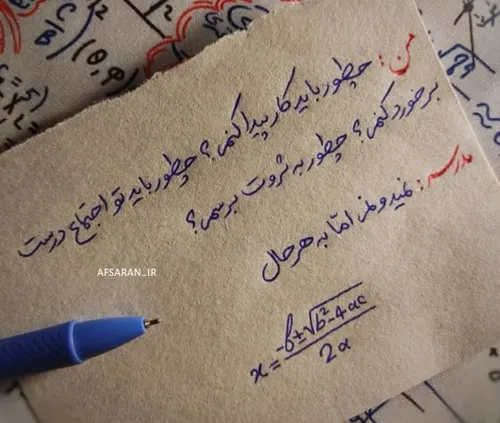 من: چطور باید کار پیدا کنم؟ چطور باید تو اجتماع درست
برخورد کنم؟ چطور به ثروت برسم؟
مدرسه: نمیدونم اما به هر حال
x = (-b ± √(b² - 4ac)) / 2a
AFSARAN_IR